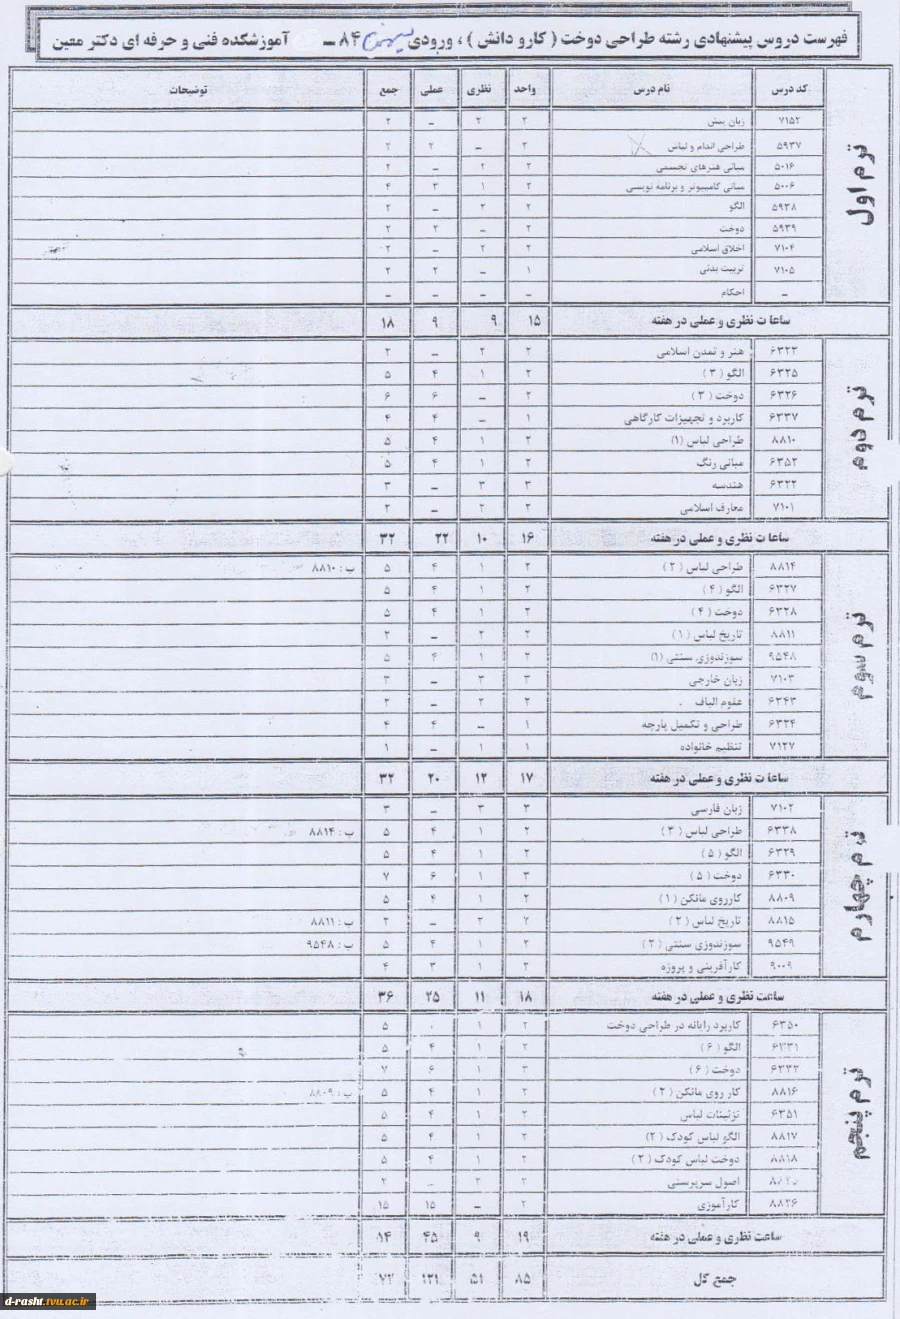 فهرست دروس پیشنهادی رشته طراحی دوخت ( کارو دانش ) ، ورودی بهمن ۸۴ ــ آموزشکده فنی و حرفه ای دکتر معین
کد درس نام درس واحد نظری عملی جمع توضیحات
ترم اول
۷۱۵۲ زبان پیش ۲ ۲ ــ ۲
۵۹۳۷ طراحی اندام و لباس ۲ ــ ۲ ۲
۵۰۱۶ مبانی هنرهای تجسمی ۲ ۲ ــ ۲
۵۰۰۶ مبانی کامپیوتر و برنامه نویسی ۲ ۱ ۳ ۴
۵۹۳۸ الگو ۲ ۲ ــ ۲
۵۹۳۹ دوخت ۲ ــ ۲ ۲
۷۱۰۴ اخلاق اسلامی ۲ ۲ ــ ۲
۷۱۰۵ تربیت بدنی ۱ ــ ۲ ۲
ــ احکام ــ ــ ــ ــ
ساعات نظری و عملی در هفته ۱۵ ۹ ۹ ۱۸
ترم دوم
۶۳۲۳ هنر و تمدن اسلامی ۲ ۲ ــ ۲
۶۳۲۵ الگو ( ۳ ) ۲ ۱ ۴ ۵
۶۳۲۶ دوخت ( ۳ ) ۲ ــ ۶ ۶
۶۳۳۷ کاربرد و تجهیزات کارگاهی ۱ ــ ۴ ۴
۸۸۱۰ طراحی لباس (۱) ۲ ۱ ۴ ۵
۶۳۵۲ مبانی رنگ ۲ ۱ ۴ ۵
۶۳۲۲ هندسه ۳ ۳ ــ ۳
۷۱۰۱ معارف اسلامی ۲ ۲ ــ ۲
ساعات نظری و عملی در هفته ۱۶ ۱۰ ۲۲ ۳۲
ترم سوم
۸۸۱۴ طراحی لباس ( ۲ ) ۲ ۱ ۴ ۵ ب : ۸۸۱۰
۶۳۲۷ الگو ( ۴ ) ۲ ۱ ۴ ۵
۶۳۲۸ دوخت ( ۴ ) ۲ ۱ ۴ ۵
۸۸۱۱ تاریخ لباس ( ۱ ) ۲ ۲ ــ ۲
۹۵۴۸ سوزندوزی سنتی (۱) ۲ ۱ ۴ ۵
۷۱۰۳ زبان خارجی ۳ ۳ ــ ۳
۶۳۴۳ علوم الیاف ۲ ۲ ــ ۲
۶۳۲۴ طراحی و تکمیل پارچه ۱ ــ ۴ ۴
۷۱۲۷ تنظیم خانواده ۱ ۱ ــ ۱
ساعات نظری و عملی در هفته ۱۷ ۱۲ ۲۰ ۳۲
ترم چهارم
۷۱۰۲ زبان فارسی ۳ ۳ ــ ۳
۶۳۳۸ طراحی لباس ( ۳ ) ۲ ۱ ۴ ۵ ب : ۸۸۱۴
۶۳۲۹ الگو ( ۵ ) ۲ ۱ ۴ ۵
۶۳۳۰ دوخت ( ۵ ) ۳ ۱ ۶ ۷
۸۸۰۹ کارروی مانکن ( ۱ ) ۲ ۱ ۴ ۵
۸۸۱۵ تاریخ لباس ( ۲ ) ۲ ۲ ــ ۲ ب : ۸۸۱۱
۹۵۴۹ سوزندوزی سنتی ( ۲ ) ۲ ۱ ۴ ۵ ب : ۹۵۴۸
۹۰۰۹ کارآفرینی و پروژه ۲ ۱ ۳ ۴
ساعت نظری و عملی در هفته ۱۸ ۱۱ ۲۵ ۳۶
ترم پنجم
۶۳۵۰ کاربرد رایانه در طراحی دوخت ۲ ۱ ۵
۶۳۳۱ الگو ( ۶ ) ۲ ۱ ۴ ۵
۶۳۳۲ دوخت ( ۶ ) ۳ ۱ ۶ ۷
۸۸۱۶ کار روی مانکن ( ۲ ) ۲ ۱ ۴ ۵ ب : ۸۸۰۹
۶۳۵۱ تزئینات لباس ۲ ۱ ۴ ۵
۸۸۱۷ الگو لباس کودک ( ۲ ) ۲ ۱ ۴ ۵
۸۸۱۸ دوخت لباس کودک ( ۲ ) ۲ ۱ ۴ ۵
اصول سرپرستی ۲ ۲ ــ ۲
۸۸۲۶ کارآموزی ۲ ــ ۱۵ ۱۵
ساعت نظری و عملی در هفته ۱۹ ۹ ۴۵
جمع کل ۸۵ ۵۱ ۱۲۱
d-rasht.tvu.ac.ir